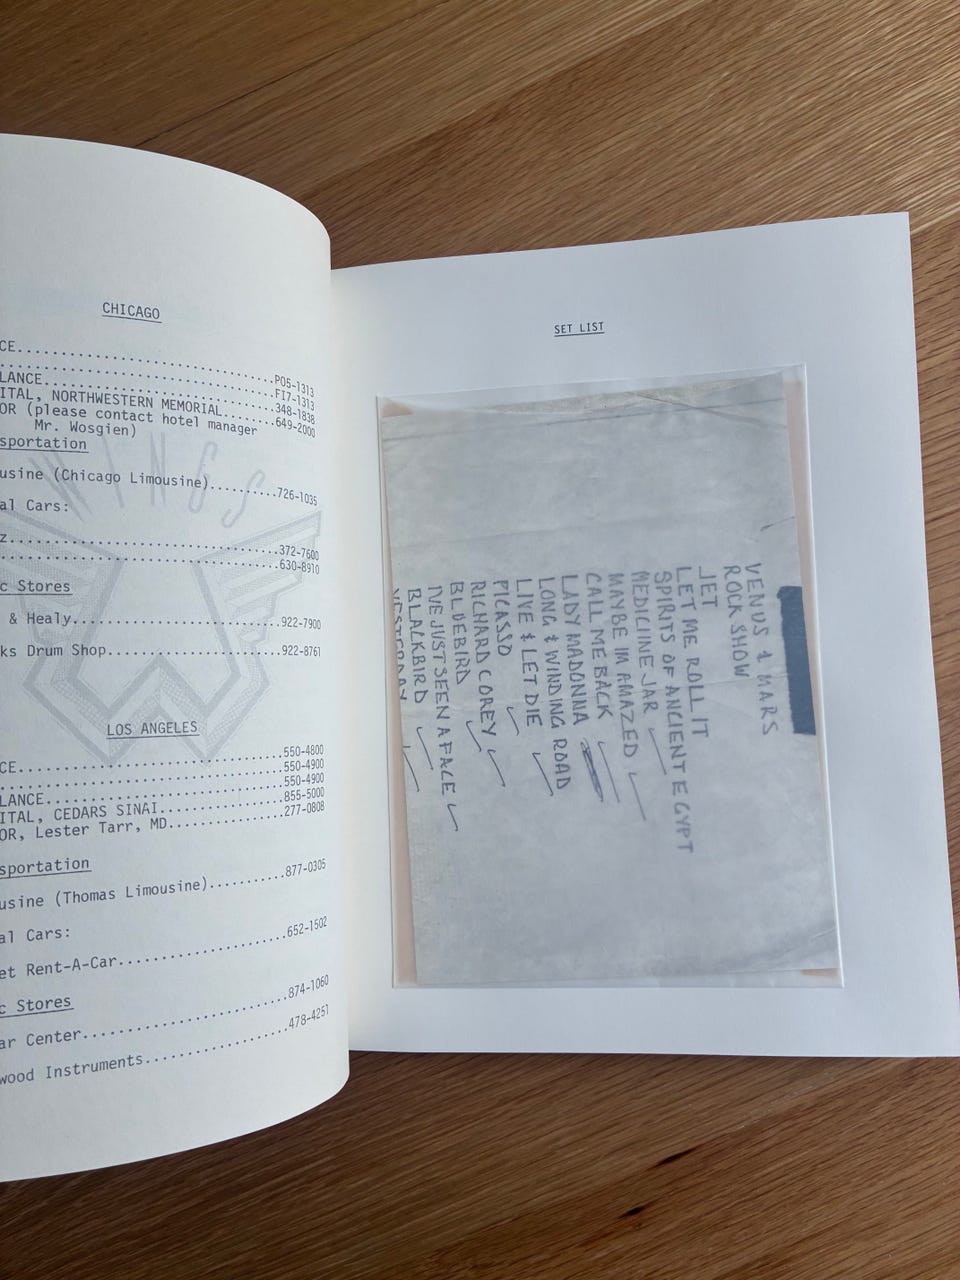 CHICAGO
CE..............................PO5-1313
................................FI7-1313
LANCE...........................348-1838
ITAL, NORTHWESTERN MEMORIAL.....649-2000
OR (please contact hotel manager
Mr. Wosgien)
sportation
usine (Chicago Limousine).......726-1035
al Cars:
z...............................372-7600
................................630-8910
c Stores
& Healy.........................922-7900
ks Drum Shop....................922-8761
WINGS
LOS ANGELES
................................550-4800
CE..............................550-4900
................................550-4900
LANCE...........................855-5000
ITAL, CEDARS SINAI..............277-0808
OR, Lester Tarr, MD.............
sportation
usine (Thomas Limousine)........877-0305
al Cars:
et Rent-A-Car...................652-1502
c Stores
ar Center.......................874-1060
wood Instruments................478-4251
SET LIST
VENUS & MARS
ROCK SHOW
JET
LET ME ROLL IT
SPIRITS OF ANCIENT EGYPT
MEDICINE JAR
MAYBE IM AMAZED
CALL ME BACK
LADY MADONNA
LONG & WINDING ROAD
LIVE & LET DIE
PICASSO
RICHARD COREY
BLUEBIRD
I'VE JUST SEEN A FACE
BLACKBIRD
YESTERDAY